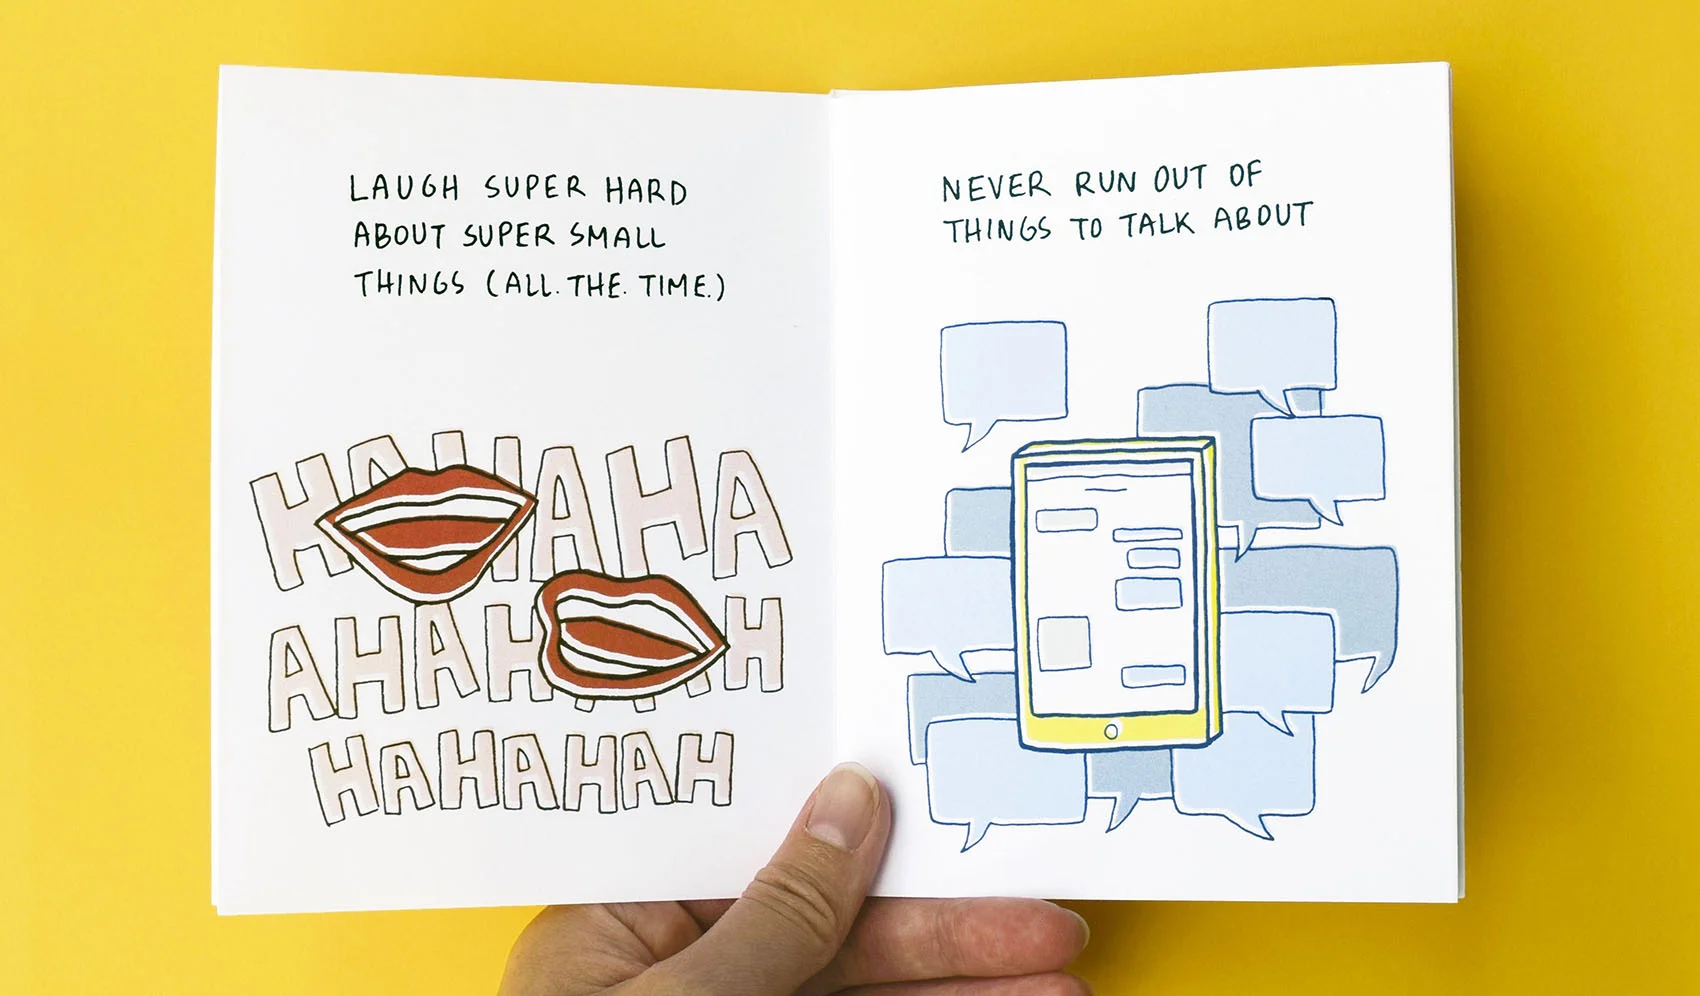 LAUGH SUPER HARD
ABOUT SUPER SMALL
THINGS (ALL. THE. TIME.)
HAHAHAHA
AHAHAHAH
HAHAHAH
NEVER RUN OUT OF
THINGS TO TALK ABOUT